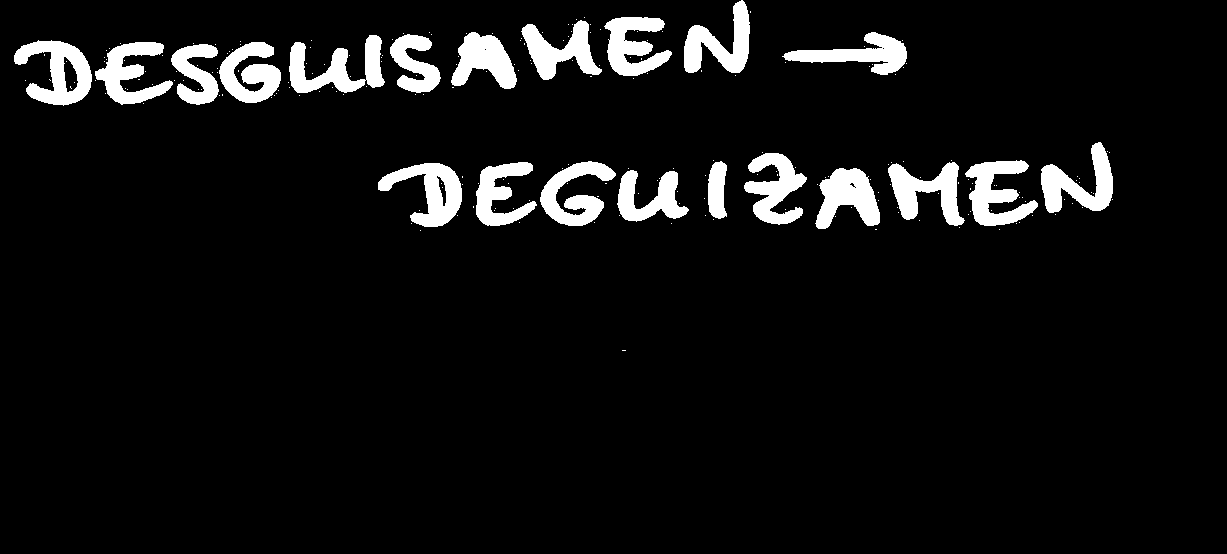 DESGUISAMEN →
DEGUIZAMEN